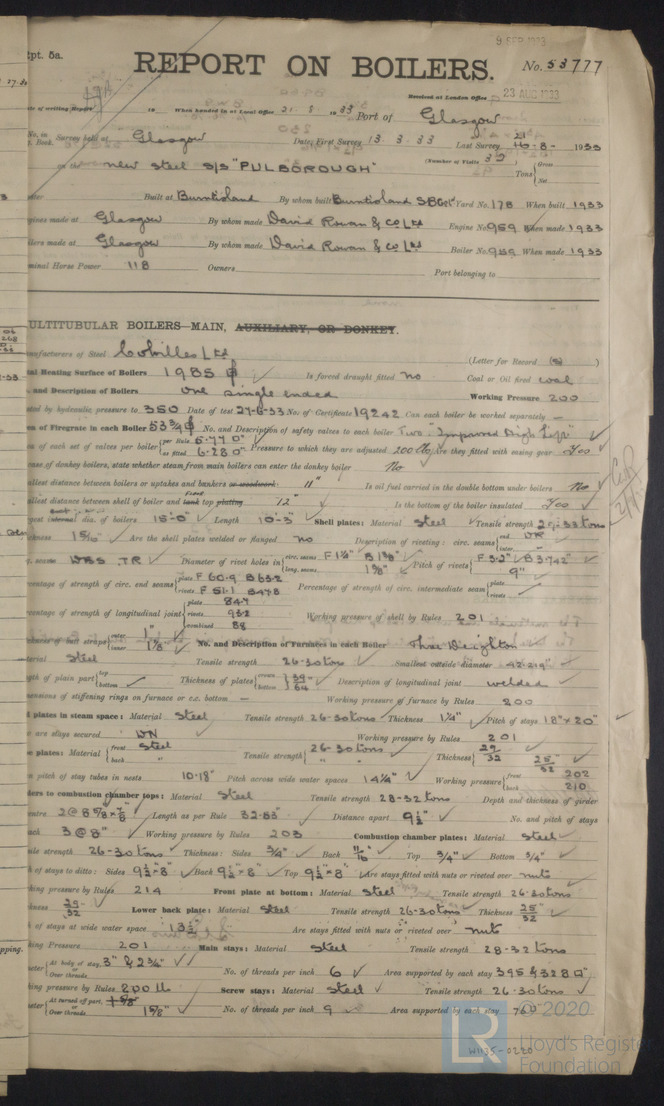 Rpt. 5a.
9 FEB 1933
REPORT ON BOILERS.
No. 53777
Received at London Office 23 AUG 1933
When handed in at Local Office 21. 8. 1933 Port of Glasgow
Survey held at Glasgow Date, First Survey 13. 3. 33 Last Survey 16-8- 1933
21
on the new steel S/S "PULBOROUGH" (Number of Visits 32) Tons Gross Net
Built at Burntisland By whom built Burntisland SBCoLd Yard No. 178 When built 1933
made at Glasgow By whom made David Rowan & Co Ltd Engine No. 959 When made 1933
made at Glasgow By whom made David Rowan & Co Ltd Boiler No. 959 When made 1933
Horse Power 118 Owners Port belonging to
MULTITUBULAR BOILERS—MAIN, AUXILIARY, OR DONKEY.
Manufacturers of Steel Colvilles Ltd
(Letter for Record (S) )
Heating Surface of Boilers 1985 Is forced draught fitted No Coal or Oil fired coal
and Description of Boilers One single ended Working Pressure 200
by hydraulic pressure to 350 Date of test 27-6-33 No. of Certificate 19242 Can each boiler be worked separately —
of Firegrate in each Boiler 53¾ No. and Description of safety valves to each boiler Two "Improved High Lift"
of each set of valves per boiler per Rule 5.77 as fitted 6.28 Pressure to which they are adjusted Are they fitted with easing gear Yes
case of donkey boilers, state whether steam from main boilers can enter the donkey boiler No
distance between boilers or uptakes and bunkers or woodwork 11" Is oil fuel carried in the double bottom under boilers No
distance between shell of boiler and tank top plating 12" Is the bottom of the boiler insulated Yes
internal dia. of boilers 15'-0" Length 10'-3" Shell plates: Material Steel Tensile strength 29-33 tons
Are the shell plates welded or flanged No Description of riveting: circ. seams end DR
long. seams DBS. TR Diameter of rivet holes in circ. seams F 1¼" B 1⅜" long. seams 1⅜" Pitch of rivets F 3.2" B 3.942" 9"
Percentage of strength of circ. end seams plate F 60.9 B 65.2 rivets F 51.1 B 47.8 Percentage of strength of circ. intermediate seam plate rivets
Percentage of strength of longitudinal joint plate 84.7 rivets 93.2 combined 88 Working pressure of shell by Rules 201
of butt straps outer 1" inner 1⅛" No. and Description of Furnaces in each Boiler Three Deighton
Material Steel Tensile strength 26-30 tons Smallest outside diameter 42.219"
of plain part top bottom Thickness of plates crown bottom 39/64 Description of longitudinal joint welded
Dimensions of stiffening rings on furnace or c.c. bottom — Working pressure of furnace by Rules 200
plates in steam space: Material Steel Tensile strength 26-30 tons Thickness 1¼" Pitch of stays 18" x 20"
are stays secured DN Working pressure by Rules 201
plates: Material front Steel back " Tensile strength 26-30 tons " " Thickness 29/32 25/32
pitch of stay tubes in nests 10.18" Pitch across wide water spaces 14¼" Working pressure front 202 back 210
to combustion chamber tops: Material Steel Tensile strength 28-32 tons Depth and thickness of girder
centre 2 @ 8⅝ x ⅞ Length as per Rule 32.83" Distance apart 9½" No. and pitch of stays
each 3 @ 8" Working pressure by Rules 203 Combustion chamber plates: Material Steel
Tensile strength 26-30 tons Thickness: Sides ¾" Back 11/16 Top ¾" Bottom ¾"
of stays to ditto: Sides 9½" x 8" Back 9½" x 8" Top 9½" x 8" Are stays fitted with nuts or riveted over nuts
Working pressure by Rules 214 Front plate at bottom: Material Steel Tensile strength 26-30 tons
Thickness 29/32 Lower back plate: Material Steel Tensile strength 26-30 tons Thickness 25/32
of stays at wide water space 13½" Are stays fitted with nuts or riveted over nuts
Working Pressure 201 Main stays: Material Steel Tensile strength 28-32 tons
At body of stay, or Over threads 3" & 2¾" No. of threads per inch 6 Area supported by each stay 395 & 328
Working pressure by Rules 200 lb Screw stays: Material Steel Tensile strength 26-30 tons
At turned off part, or Over threads 1⅝" No. of threads per inch 9 Area supported by each stay 76
W1135-0220
LR © 2020
Lloyd's Register
Foundation